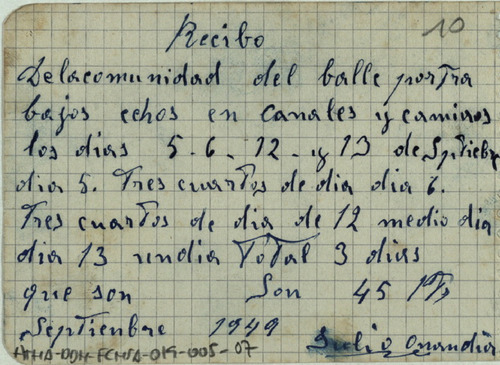 10
Recibo
Delacomunidad del balle portra
bajos echos en canales y camiros
los dias 5.6-12-y 13 de Sptiebre
dia 5. Tres cuartos de dia dia 6.
Tres cuartos de dia de 12 medio dia
dia 13 undia Total 3 dias
que son Son 45 Pts
Septienbre 1949
Julio Onandia
AHHA-DDH-FCMSA-019-005-07